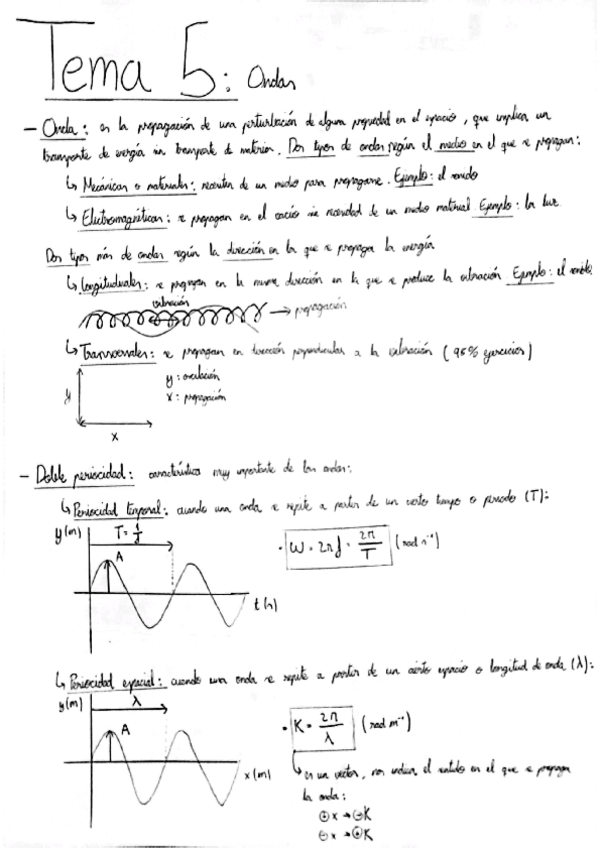 Tema 5: Ondas
- Onda: es la propagación de una perturbación de alguna propiedad en el espacio, que implica un
transporte de energía sin transporte de materia. Dos tipos de ondas según el medio en el que se propagan:
↳ Mecánicas o materiales: necesitan de un medio para propagarse. Ejemplo: el sonido
↳ Electromagnéticas: se propagan en el vacío sin necesidad de un medio material Ejemplo: la luz
Dos tipos más de ondas según la dirección en la que se propaga la energía
↳ Longitudinales: se propagan en la misma dirección en la que se produce la vibración Ejemplo: el sonido
vibración
→ propagación
↳ Transversales: se propagan en dirección perpendicular a la vibración (98% ejercicios)
y
x
y: oscilación
x: propagación
- Doble periocidad: característica muy importante de las ondas:
↳ Periocidad temporal: cuando una onda se repite a partir de un cierto tiempo o periodo (T):
y(m)
T = 1/f
A
t(s)
• W = 2πf = 2π/T (rad s⁻¹)
↳ Periocidad espacial: cuando una onda se repite a partir de un cierto espacio o longitud de onda (λ):
y(m)
λ
A
x(m)
• K = 2π/λ (rad m⁻¹)
↳ es un vector, nos indica el sentido en el que se propaga
la onda:
⊕x → ⊖K
⊖x → ⊕K